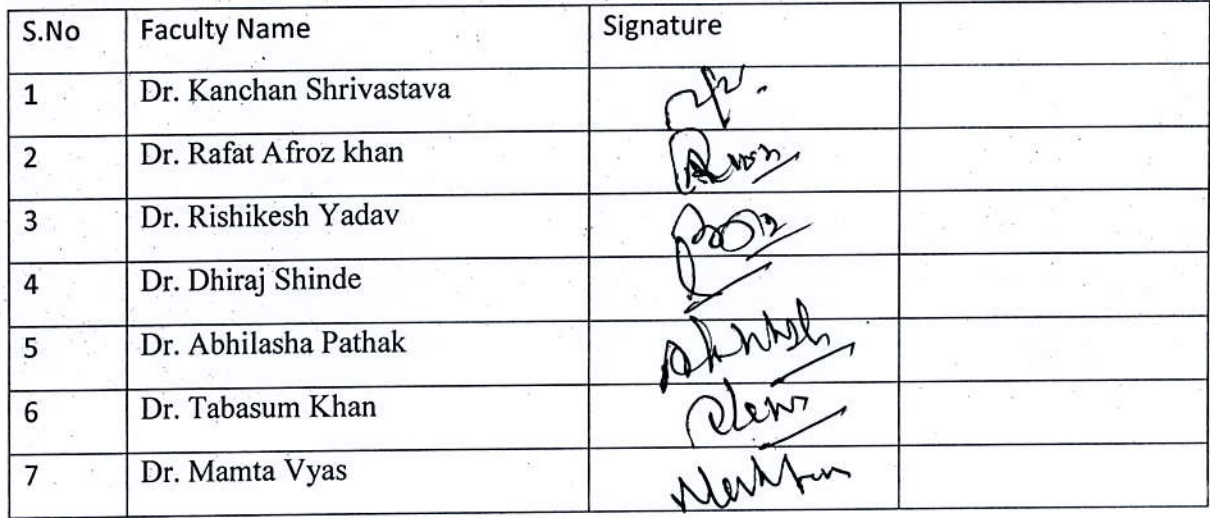 S.No Faculty Name Signature
1 Dr. Kanchan Shrivastava
2 Dr. Rafat Afroz khan
3 Dr. Rishikesh Yadav
4 Dr. Dhiraj Shinde
5 Dr. Abhilasha Pathak
6 Dr. Tabasum Khan
7 Dr. Mamta Vyas